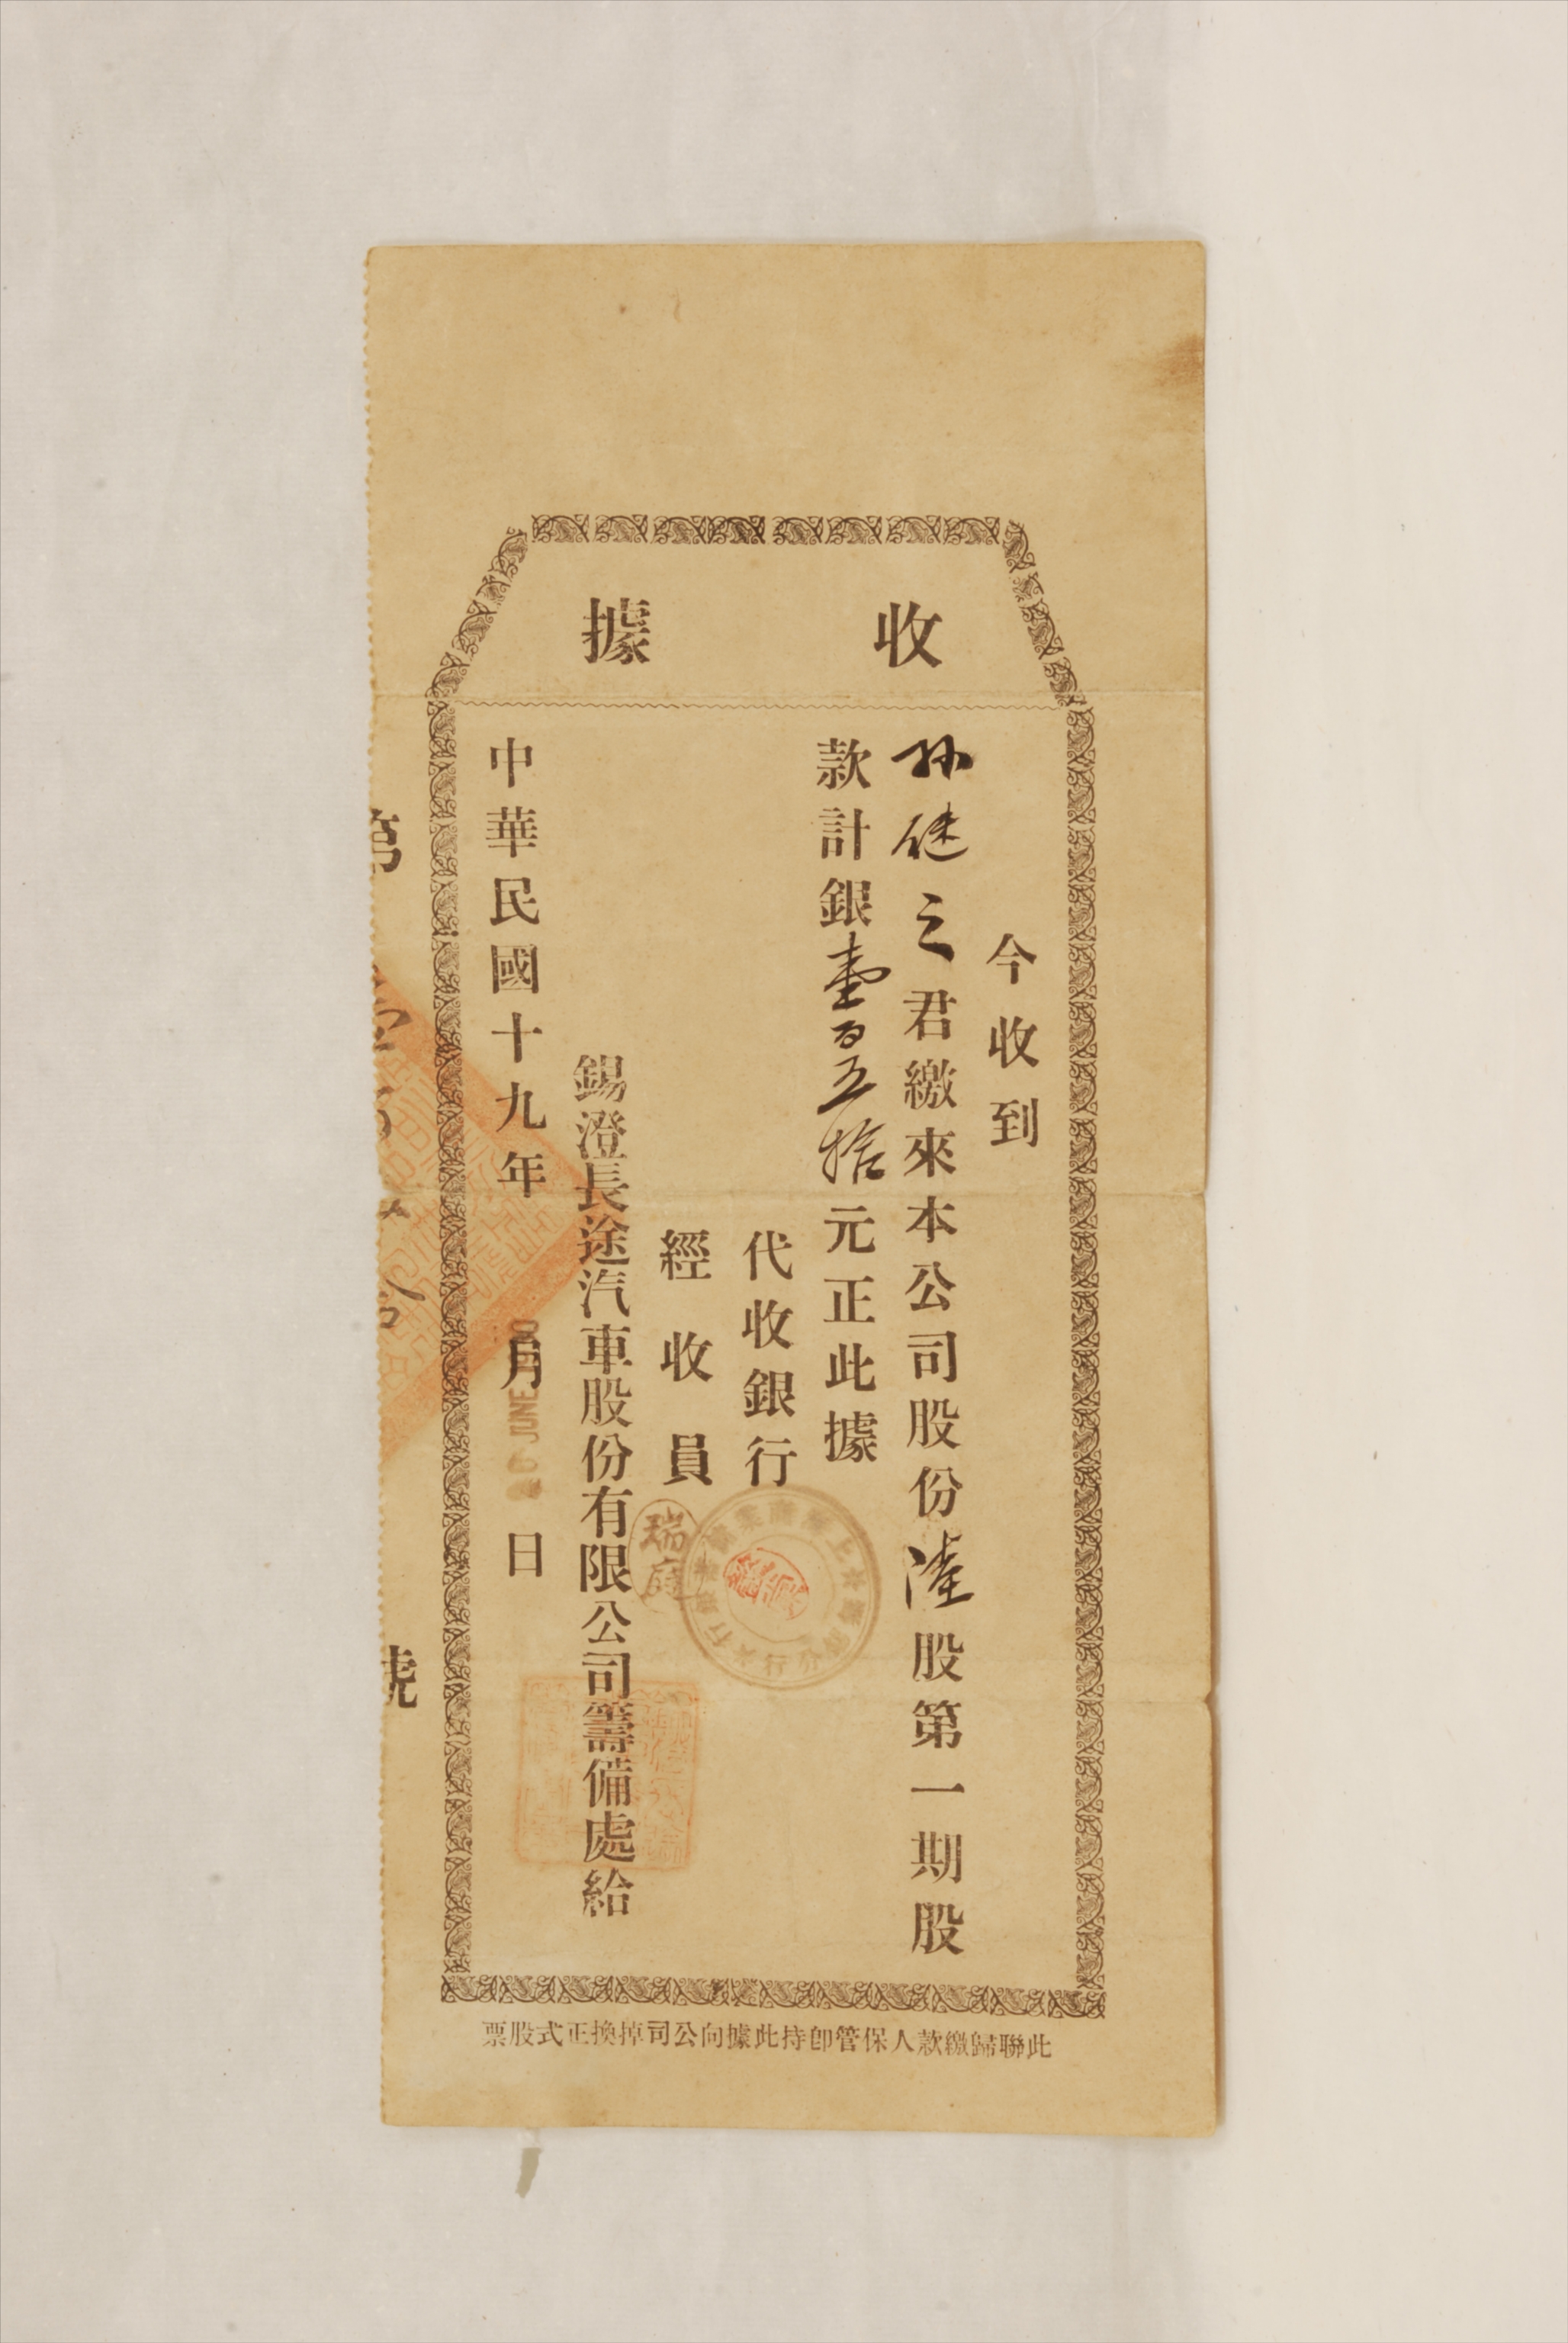 收據
今收到
孫繼之君繳來本公司股份陸股第一期股
款計銀壹百五拾元正此據
代收銀行
經收員
瑞庭
錫澄長途汽車股份有限公司籌備處給
中華民國十九年月日
JUNE
第
號
此聯歸繳款人保管卽持此據向公司掉換正式股票